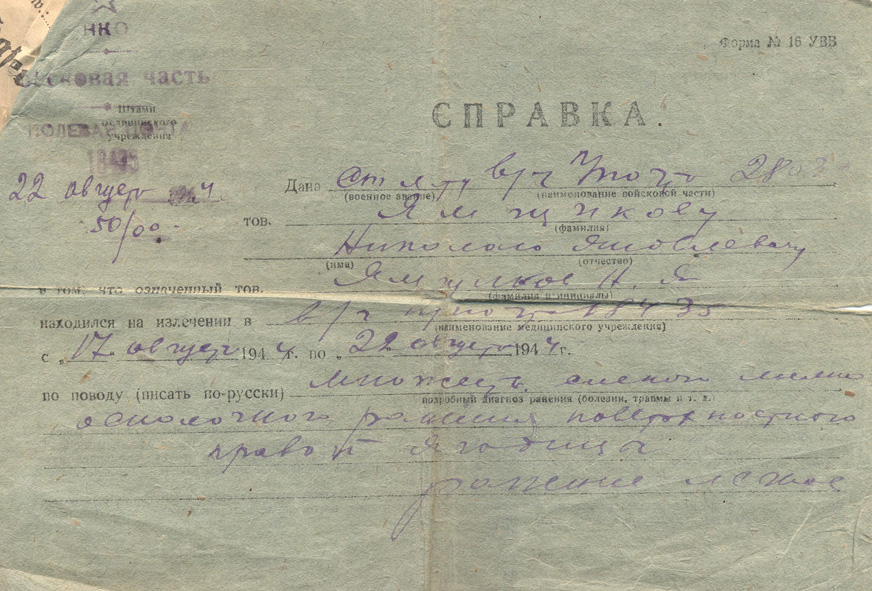 НКО
Форма № 16 УВВ
часть
Штамп
медицинского
учреждения
ПОЛЕВАЯ ПОЧТА
СПРАВКА.
22 август
50/00.
Дана
(военное звание) (наименование войсковой части)
тов. Ямщикову
(фамилия)
Николаю Яковлевичу
(имя) (отчество)
в том, что означенный тов. Н. Я
(фамилия и инициалы)
находился на излечении в в/ч 18435
(наименование медицинского учреждения)
с „17" август 1944 г. по „22 август 1944 г.
по поводу (писать по-русски) множеств. слепого мелко
подробный диагноз ранения (болезни, травмы и т. д.)
осколочного ранения поверхностного
правой ягодицы
ранение легкое